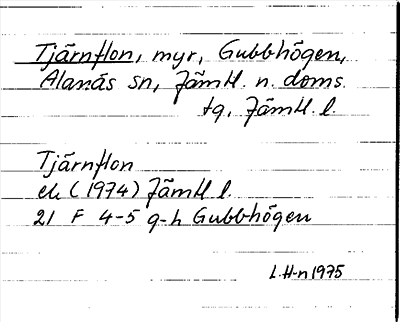 Tjärnflon, myr, Gubbhögen,
Alanäs sn, Jämtl. n. doms.
tg, Jämtl. l.
Tjärnflon
ek (1974) Jämtl l.
21 F 4-5 g-h Gubbhögen
L.H-n 1975